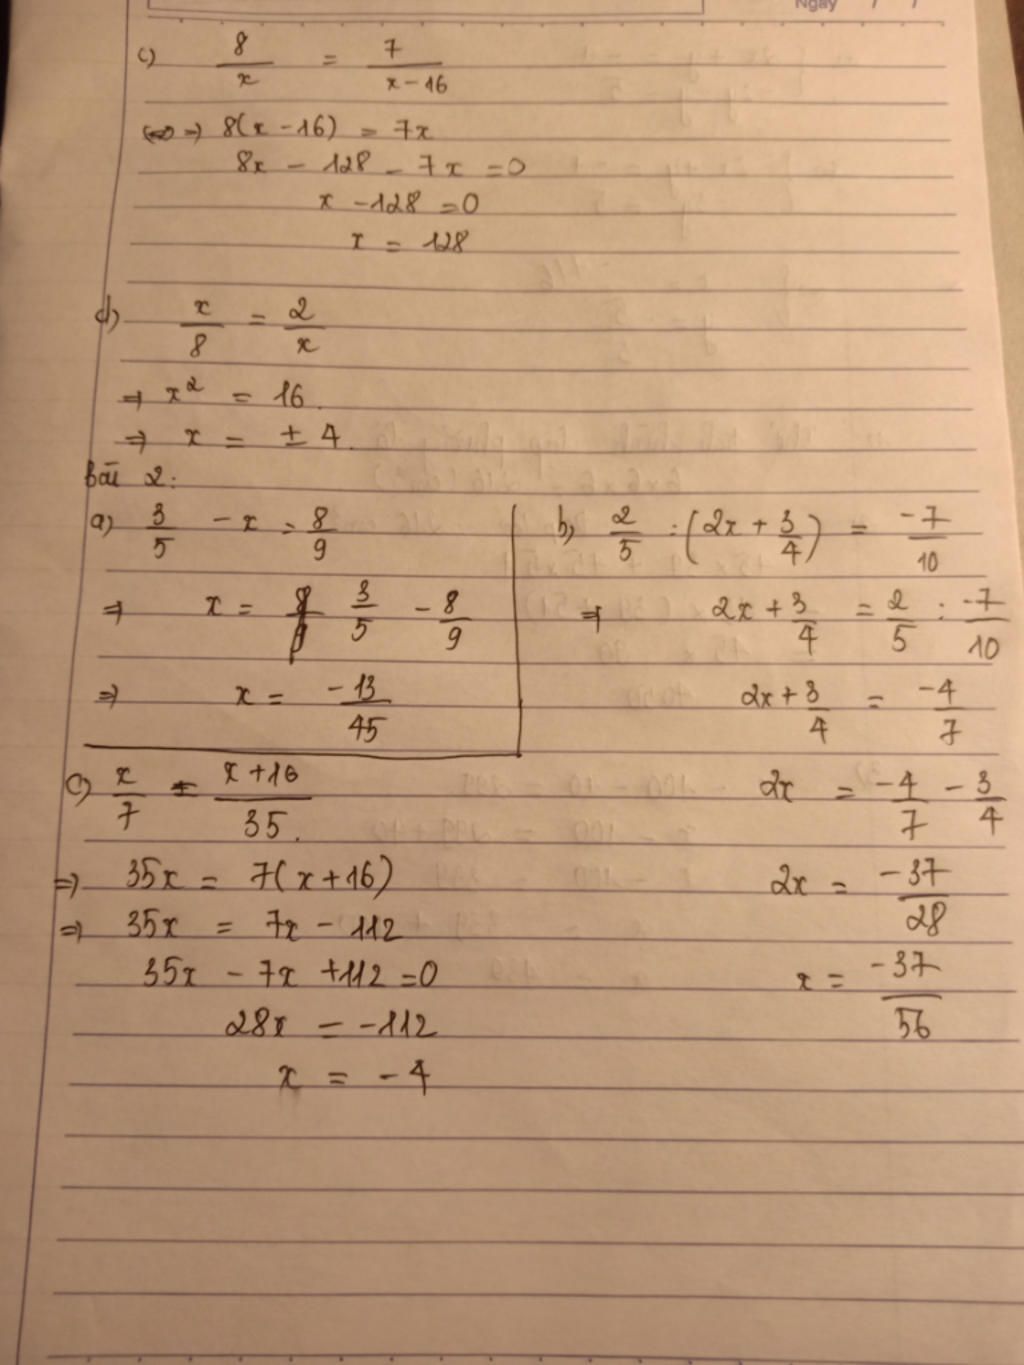 Ngày / /
c) 8/x = 7/(x-16)
=> 8(x-16) = 7x
8x - 128 - 7x = 0
x - 128 = 0
x = 128
d) x/8 = 2/x
=> x² = 16.
=> x = ± 4.
Bài 2:
a) 3/5 - x = 8/9
=> x = 3/5 - 8/9
=> x = -13/45
b) 2/5 : (2x + 3/4) = -7/10
=> 2x + 3/4 = 2/5 : -7/10
2x + 3/4 = -4/7
2x = -4/7 - 3/4
2x = -37/28
x = -37/56
c) x/7 = (x+16)/35.
=> 35x = 7(x+16)
=> 35x = 7x - 112
35x - 7x + 112 = 0
28x = -112
x = -4